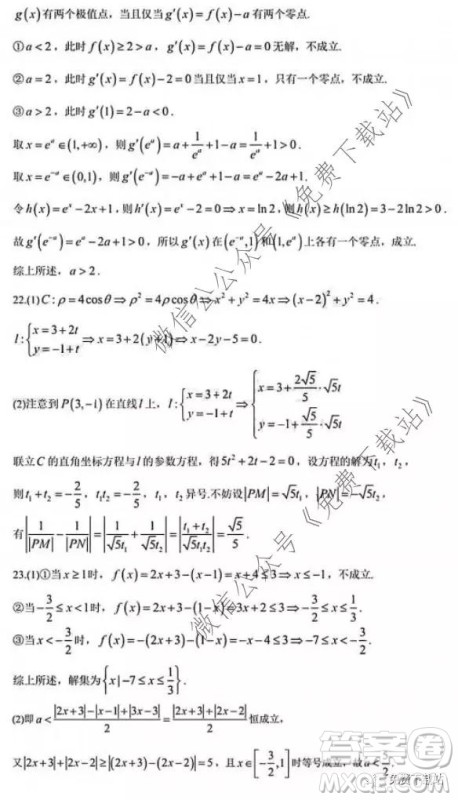 g(x)有两个极值点，当且仅当g′(x)=f(x)-a有两个零点.
①a<2，此时f(x)≥2>a，g′(x)=f(x)-a=0无解，不成立.
②a=2，此时g′(x)=f(x)-2=0当且仅当x=1，只有一个零点，不成立.
③a>2，此时g′(1)=2-a<0.
取x=e^a∈(1,+∞)，则g′(e^a)=a+1/e^a+1-a=1/e^a+1>0.
取x=e^{-a}∈(0,1)，则g′(e^{-a})=-a+e^a+1-a=e^a-2a+1.
令h(x)=e^x-2x+1，则h′(x)=e^x-2=0⇒x=ln2，则h(x)≥h(ln2)=3-2ln2>0.
故g′(e^{-a})=e^a-2a+1>0，所以g′(x)在(e^{-a},1)和(1,e^a)上各有一个零点，成立.
综上所述，a>2.
22.(1)C:ρ=4cosθ⇒ρ²=4ρcosθ⇒x²+y²=4x⇒(x-2)²+y²=4.
l:{x=3+2t, y=-1+t⇒x=3+2(y+1)⇒x-2y-5=0.
(2)注意到P(3,-1)在直线l上，l:{x=3+2t, y=-1+t⇒{x=3+2√5/5·√5t, y=-1+√5/5·√5t
联立C的直角坐标方程与l的参数方程，得5t²+2t-2=0，设方程的解为t₁，t₂，
则t₁+t₂=-2/5，t₁t₂=-2/5，t₁，t₂异号.不妨设|PM|=√5t₁，|PN|=-√5t₂，
有|1/|PM|-1/|PN||=|1/√5t₁+1/√5t₂|=|t₁+t₂/√5t₁t₂|=√5/5.
23.(1)①当x≥1时，f(x)=2x+3-(x-1)=x+4≤3⇒x≤-1，不成立.
②当-3/2≤x<1时，f(x)=2x+3-(1-x)=3x+2≤3⇒-3/2≤x≤1/3.
③当x<-3/2时，f(x)=-(2x+3)-(1-x)=-x-4≤3⇒-7≤x<-3/2.
综上所述，解集为{x|-7≤x≤1/3}.
(2)即a<|2x+3|-|x-1|+|3x-3|/2=|2x+3|+|2x-2|/2恒成立，
又|2x+3|+|2x-2|≥|(2x+3)-(2x-2)|=5，且x∈[-3/2,1]时等号成立，故a<5/2.
微信公众号《免费下载站》
微信公众号《免费下载站》
答案圈